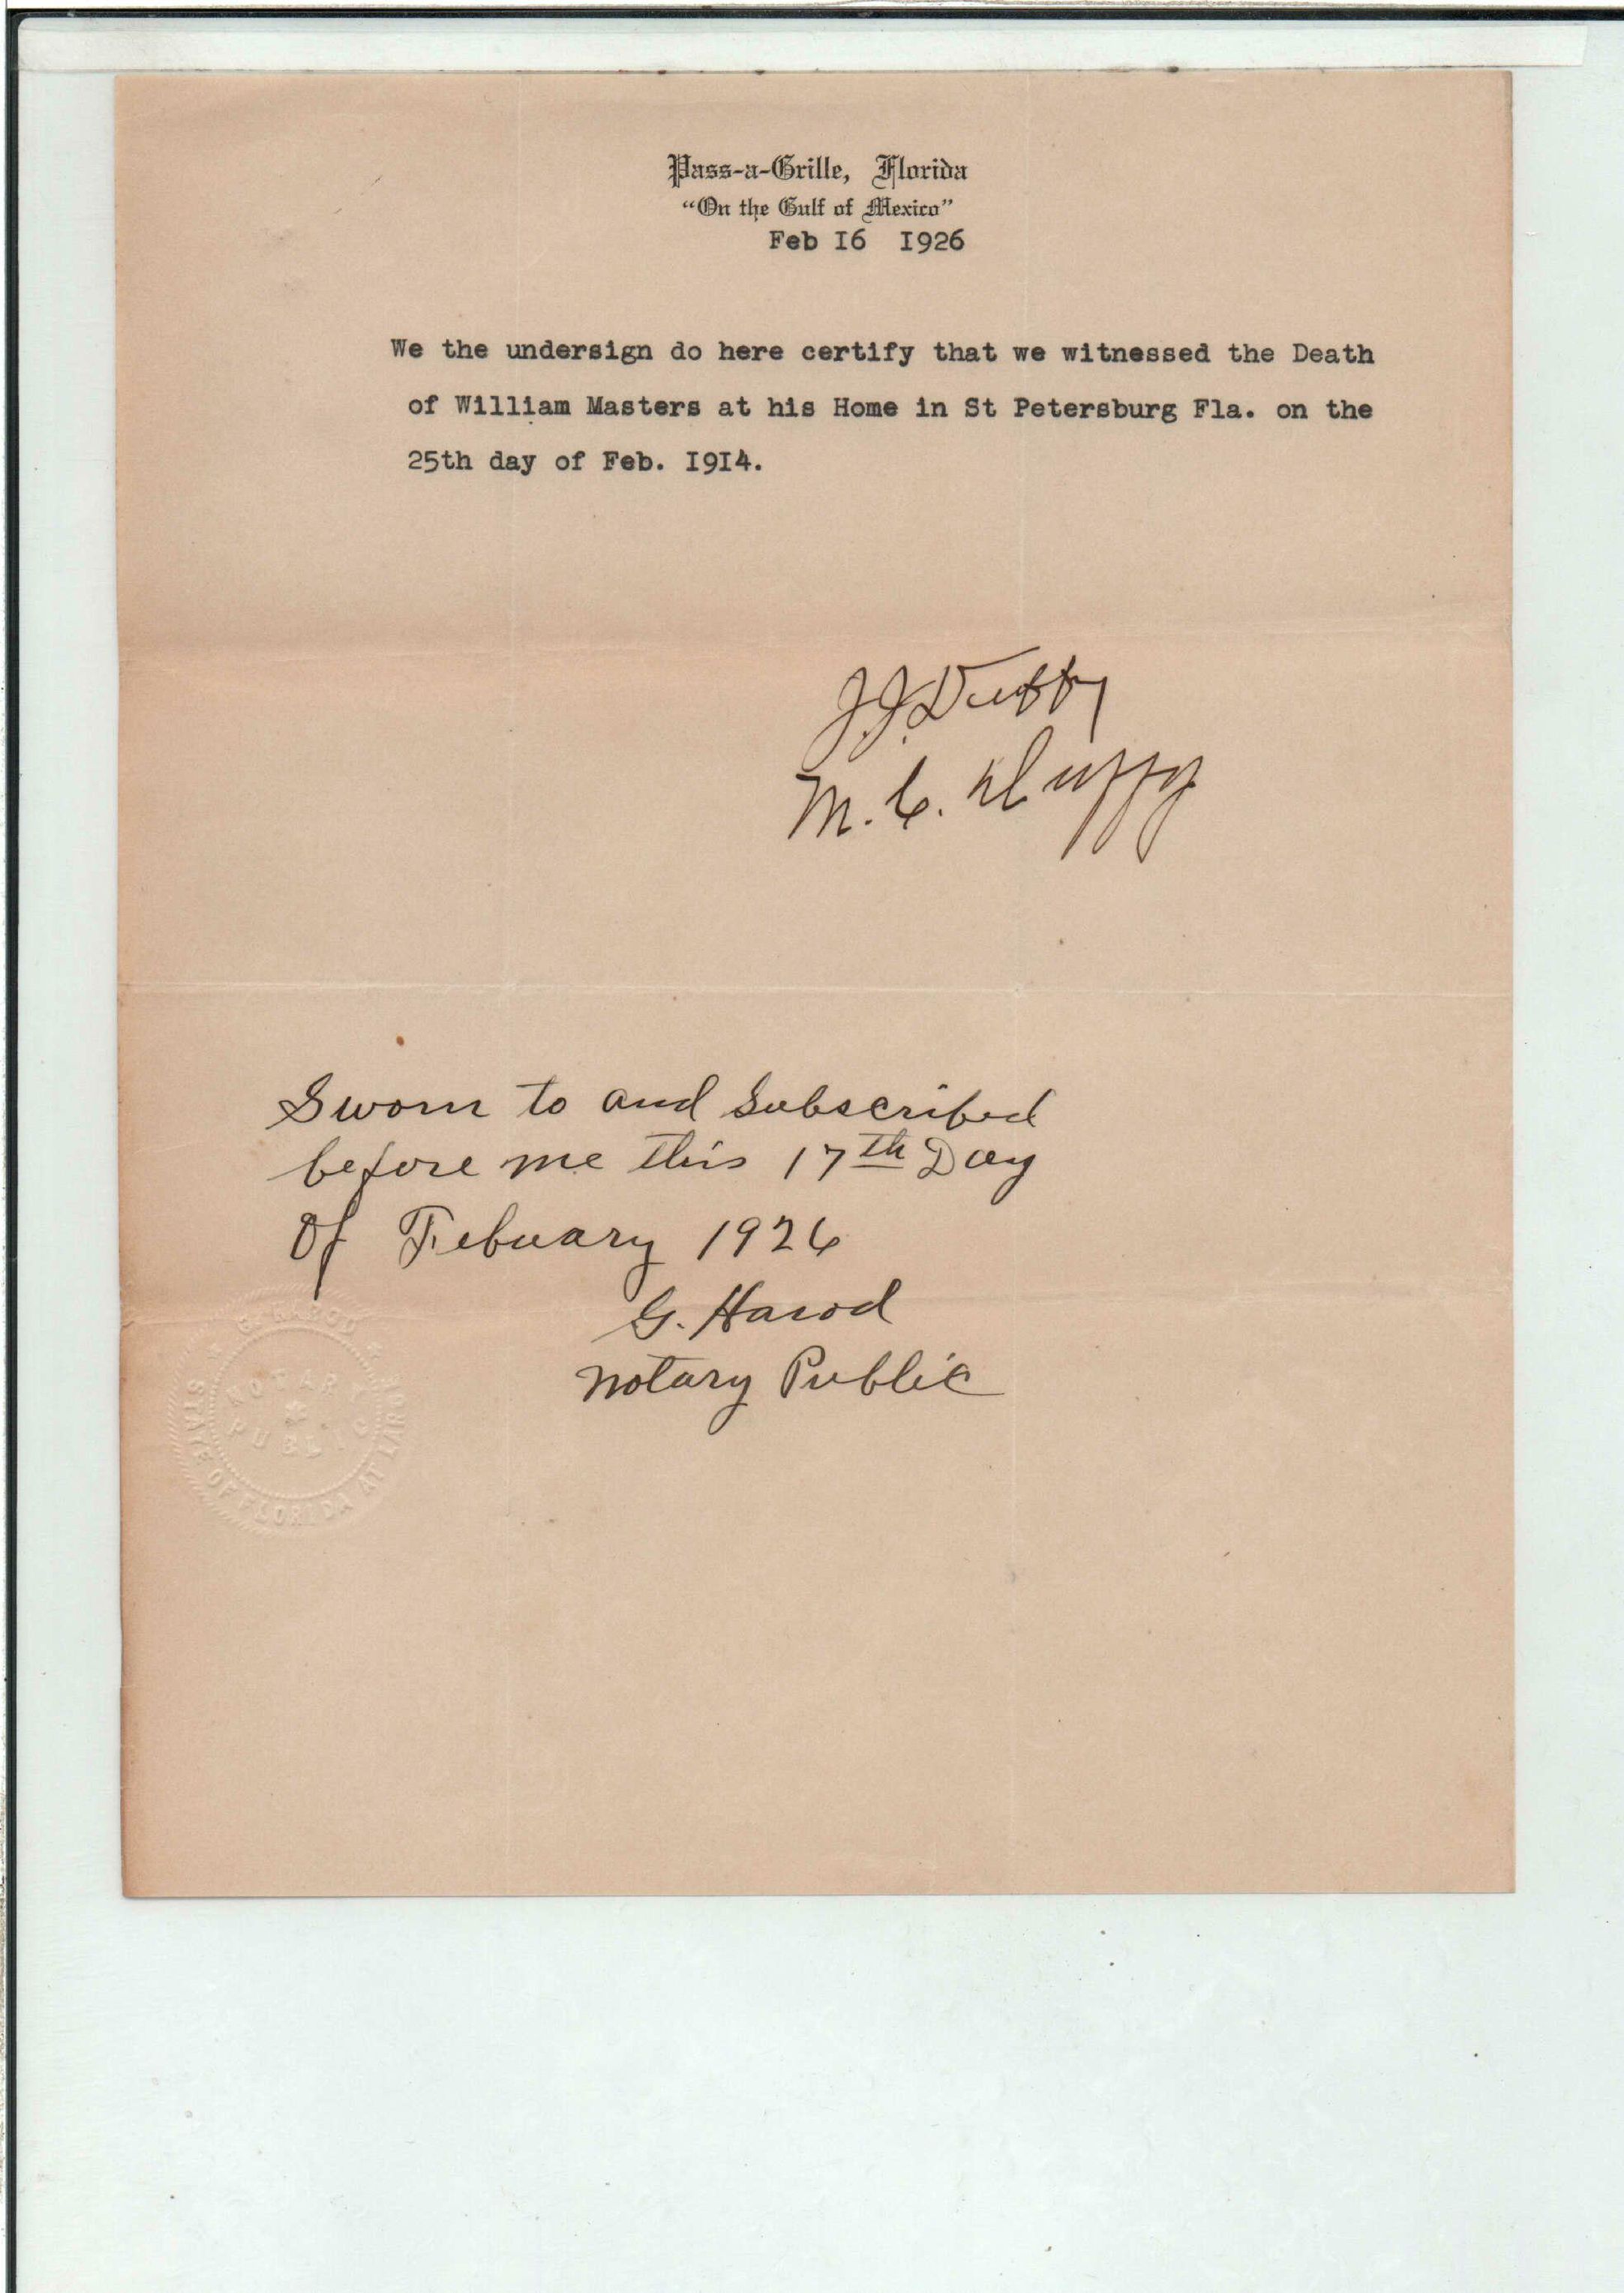 Pass-a-Grille, Florida
"On the Gulf of Mexico"
Feb I6 I926
We the undersign do here certify that we witnessed the Death
of William Masters at his Home in St Petersburg Fla. on the
25th day of Feb. I9I4.
J.J. Duffy
M. C. Duffy
Sworn to and Subscribed
before me this 17th Day
Of Febuary 1926
G. Harod
Notary Public
G. HAROD
NOTARY
PUBLIC
STATE OF FLORIDA AT LARGE